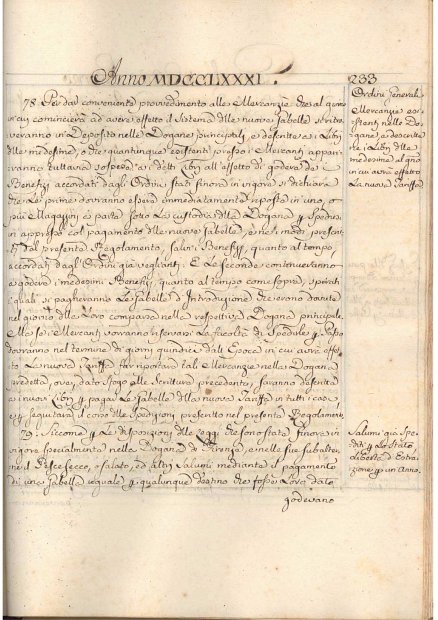 Anno MDCCLXXXI.
233
78. Per dar conveniente provvedimento alle Mercanzie che al giorno
in cui comincierà ad avere effetto il sistema delle nuove Gabelle si ritro
veranno in Deposito nelle Dogane principali, e descritte a i Libri
delle medesime, o che quantunque esistenti presso i Mercanti appari
ranno tuttavia sospese a i detti Libri all'effetto di godere de i
Benefizj accordati dagli Ordini stati finora in vigore si dichiara
che Le prime dovranno essere immediatamente riposte in uno, o
più Magazzini a parte sotto La custodia della Dogana p Spedirsi
in appresso col pagamento delle nuove Gabelle, e ne i modi prescrit
ti dal presente Regolamento, salvi i Benefizj, quanto al tempo,
accordati dagl'Ordini già veglianti. E Le seconde continueranno
a godere i medesimi Benefizj, quanto al tempo come sopra, spirati
i quali si pagheranno Le Gabelle d'Introduzione che erono dovute
nel giorno della Loro comparsa nella respettiva Dogana principale
Ma se i Mercanti vorranno riservarsi La facoltà di Spedirle p Passo
dovranno nel termine di giorni quindici dall'Epoca in cui avrà effet
to La nuova Tariffa far riportare tali Mercanzie nella Dogana
predetta, ove, dato sfogo alle Scritture precedenti, saranno descritte
a i nuovi Libri p pagar Le Gabelle della nuova Tariffa in tutti i casi
e p seguitare il corso delle Spedizioni prescritto nel presente Regolamento
79. Siccome p Le disposizioni delle Leggi che sono state finora in
vigore specialmente nella Dogana di Firenze, e nelle sue subalterne,
il Pesce secco, o salato, ed altri Salumi mediante il pagamento
di una Gabella uguale p qualunque destino che fosse Loro dato
godevano
Ordini generali
Mercanzie esi
stenti nelle Do
gane, e descritte
a i Libri delle
medesime al gno
in cui avrà effetto
La nuova Tariffa
Salumi già Spe
diti p Lo Stato
Libertà d'Estra
zione p un Anno.